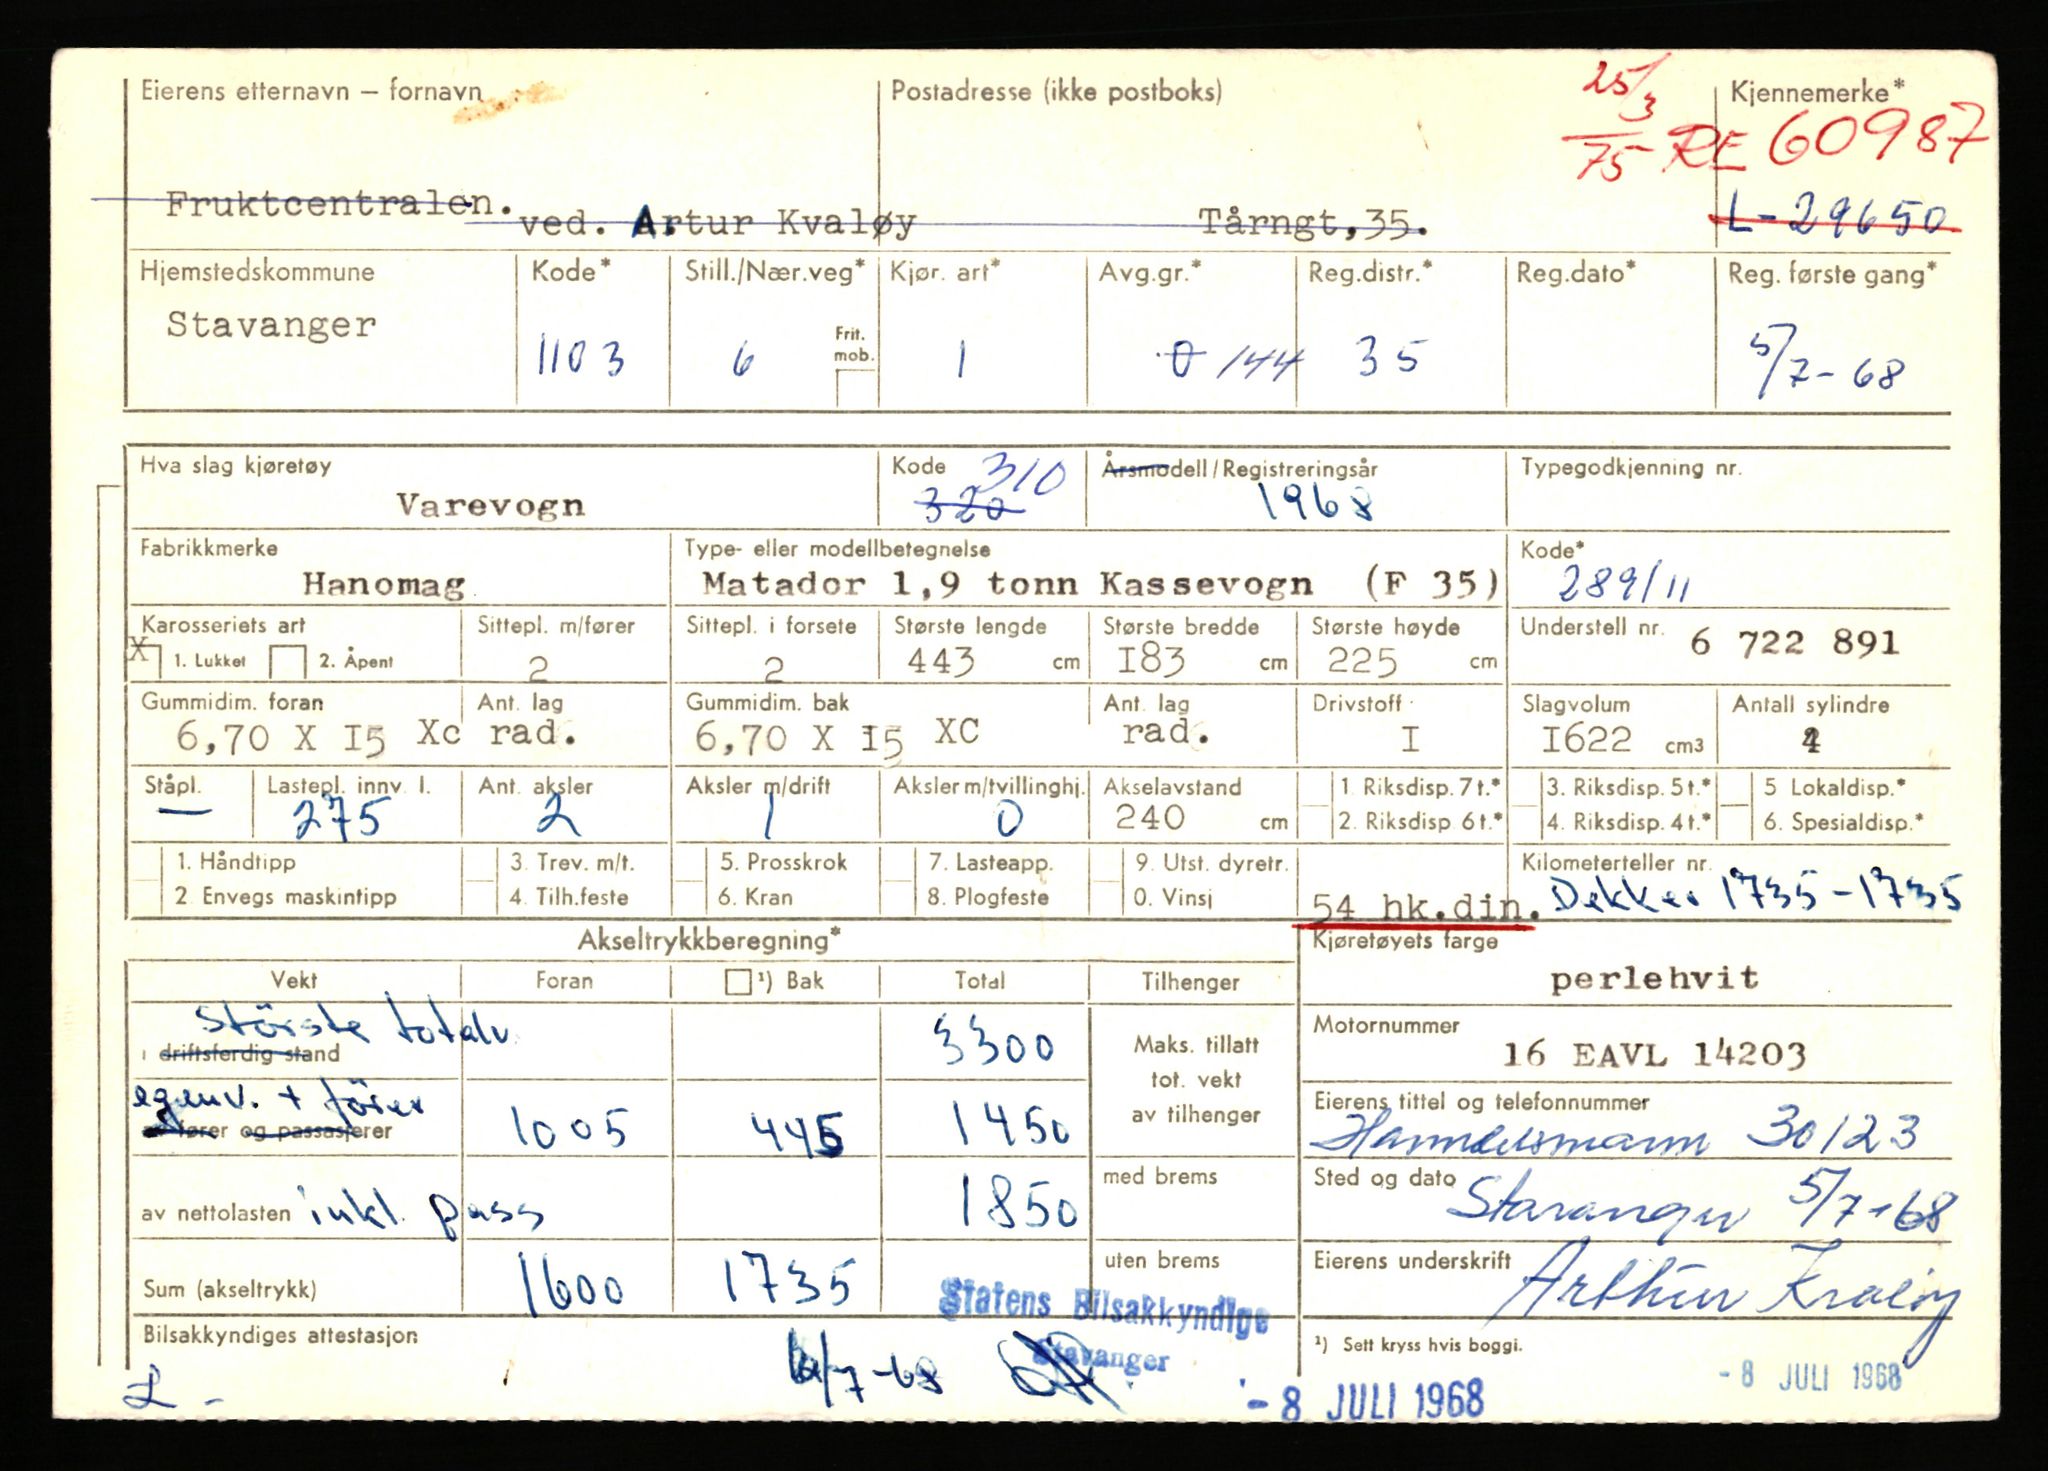 Eierens etternavn – fornavn Postadresse (ikke postboks) 25/3 75 Kjennemerke*
RE 60987
Fruktcentralen. ved. Artur Kvaløy Tårngt,35. L-29650
Hjemstedskommune Kode* Still./Nær.veg* Kjør. art* Avg.gr.* Reg.distr.* Reg.dato* Reg. første gang*
Stavanger 1103 6 Frit. mob. 1 0 144 35 5/7-68
Hva slag kjøretøy Kode 310 Årsmodell/Registreringsår Typegodkjenning nr.
Varevogn 320 1968
Fabrikkmerke Type- eller modellbetegnelse Kode*
Hanomag Matador 1,9 tonn Kassevogn (F 35) 289/11
Karosseriets art Sittepl. m/fører Sittepl. i forsete Største lengde Største bredde Største høyde Understell nr. 6 722 891
X 1. Lukket 2. Åpent 2 2 443 cm I83 cm 225 cm
Gummidim. foran Ant. lag Gummidim. bak Ant. lag Drivstoff Slagvolum Antall sylindre
6,70 X I5 Xc rad. 6,70 X I5 XC rad. I I622 cm3 4
Ståpl. Lastepl. innv. l. Ant. aksler Aksler m/drift Aksler m/tvillinghj. Akselavstand 1 Riksdisp. 7 t.* 3. Riksdisp. 5 t.* 5 Lokaldisp.*
— 275 2 1 0 240 cm 2. Riksdisp 6 t.* 4. Riksdisp. 4 t.* 6. Spesialdisp.*
1. Håndtipp 3. Trev. m/t. 5. Prosskrok 7. Lasteapp. 9. Utst. dyretr. Kilometerteller nr.
2. Envegs maskintipp 4. Tilh.feste 6. Kran 8. Plogfeste 0. Vinsj 54 hk.din. Dekker 1735-1735
Akseltrykkberegning* Kjøretøyets farge
Vekt Foran ¹) Bak Total Tilhenger perlehvit
Största totalv. 3300
i driftsferdig stand Maks. tillatt tot. vekt av tilhenger Motornummer
16 EAVL 14203
egenv. + förer 1005 445 1450 Eierens tittel og telefonnummer
av fører og passasjerer Handelsmann 30123
av nettolasten inkl. pass 1850 med brems Sted og dato Stavanger 5/7-68
Sum (akseltrykk) 1600 1735 uten brems Eierens underskrift Arthur Kvaløy
Statens Bilsakkyndige
Stavanger
Bilsakkyndiges attestasjon /7-68 ¹) Sett kryss hvis boggi.
L - - 8 JULI 1968 - 8 JULI 1968